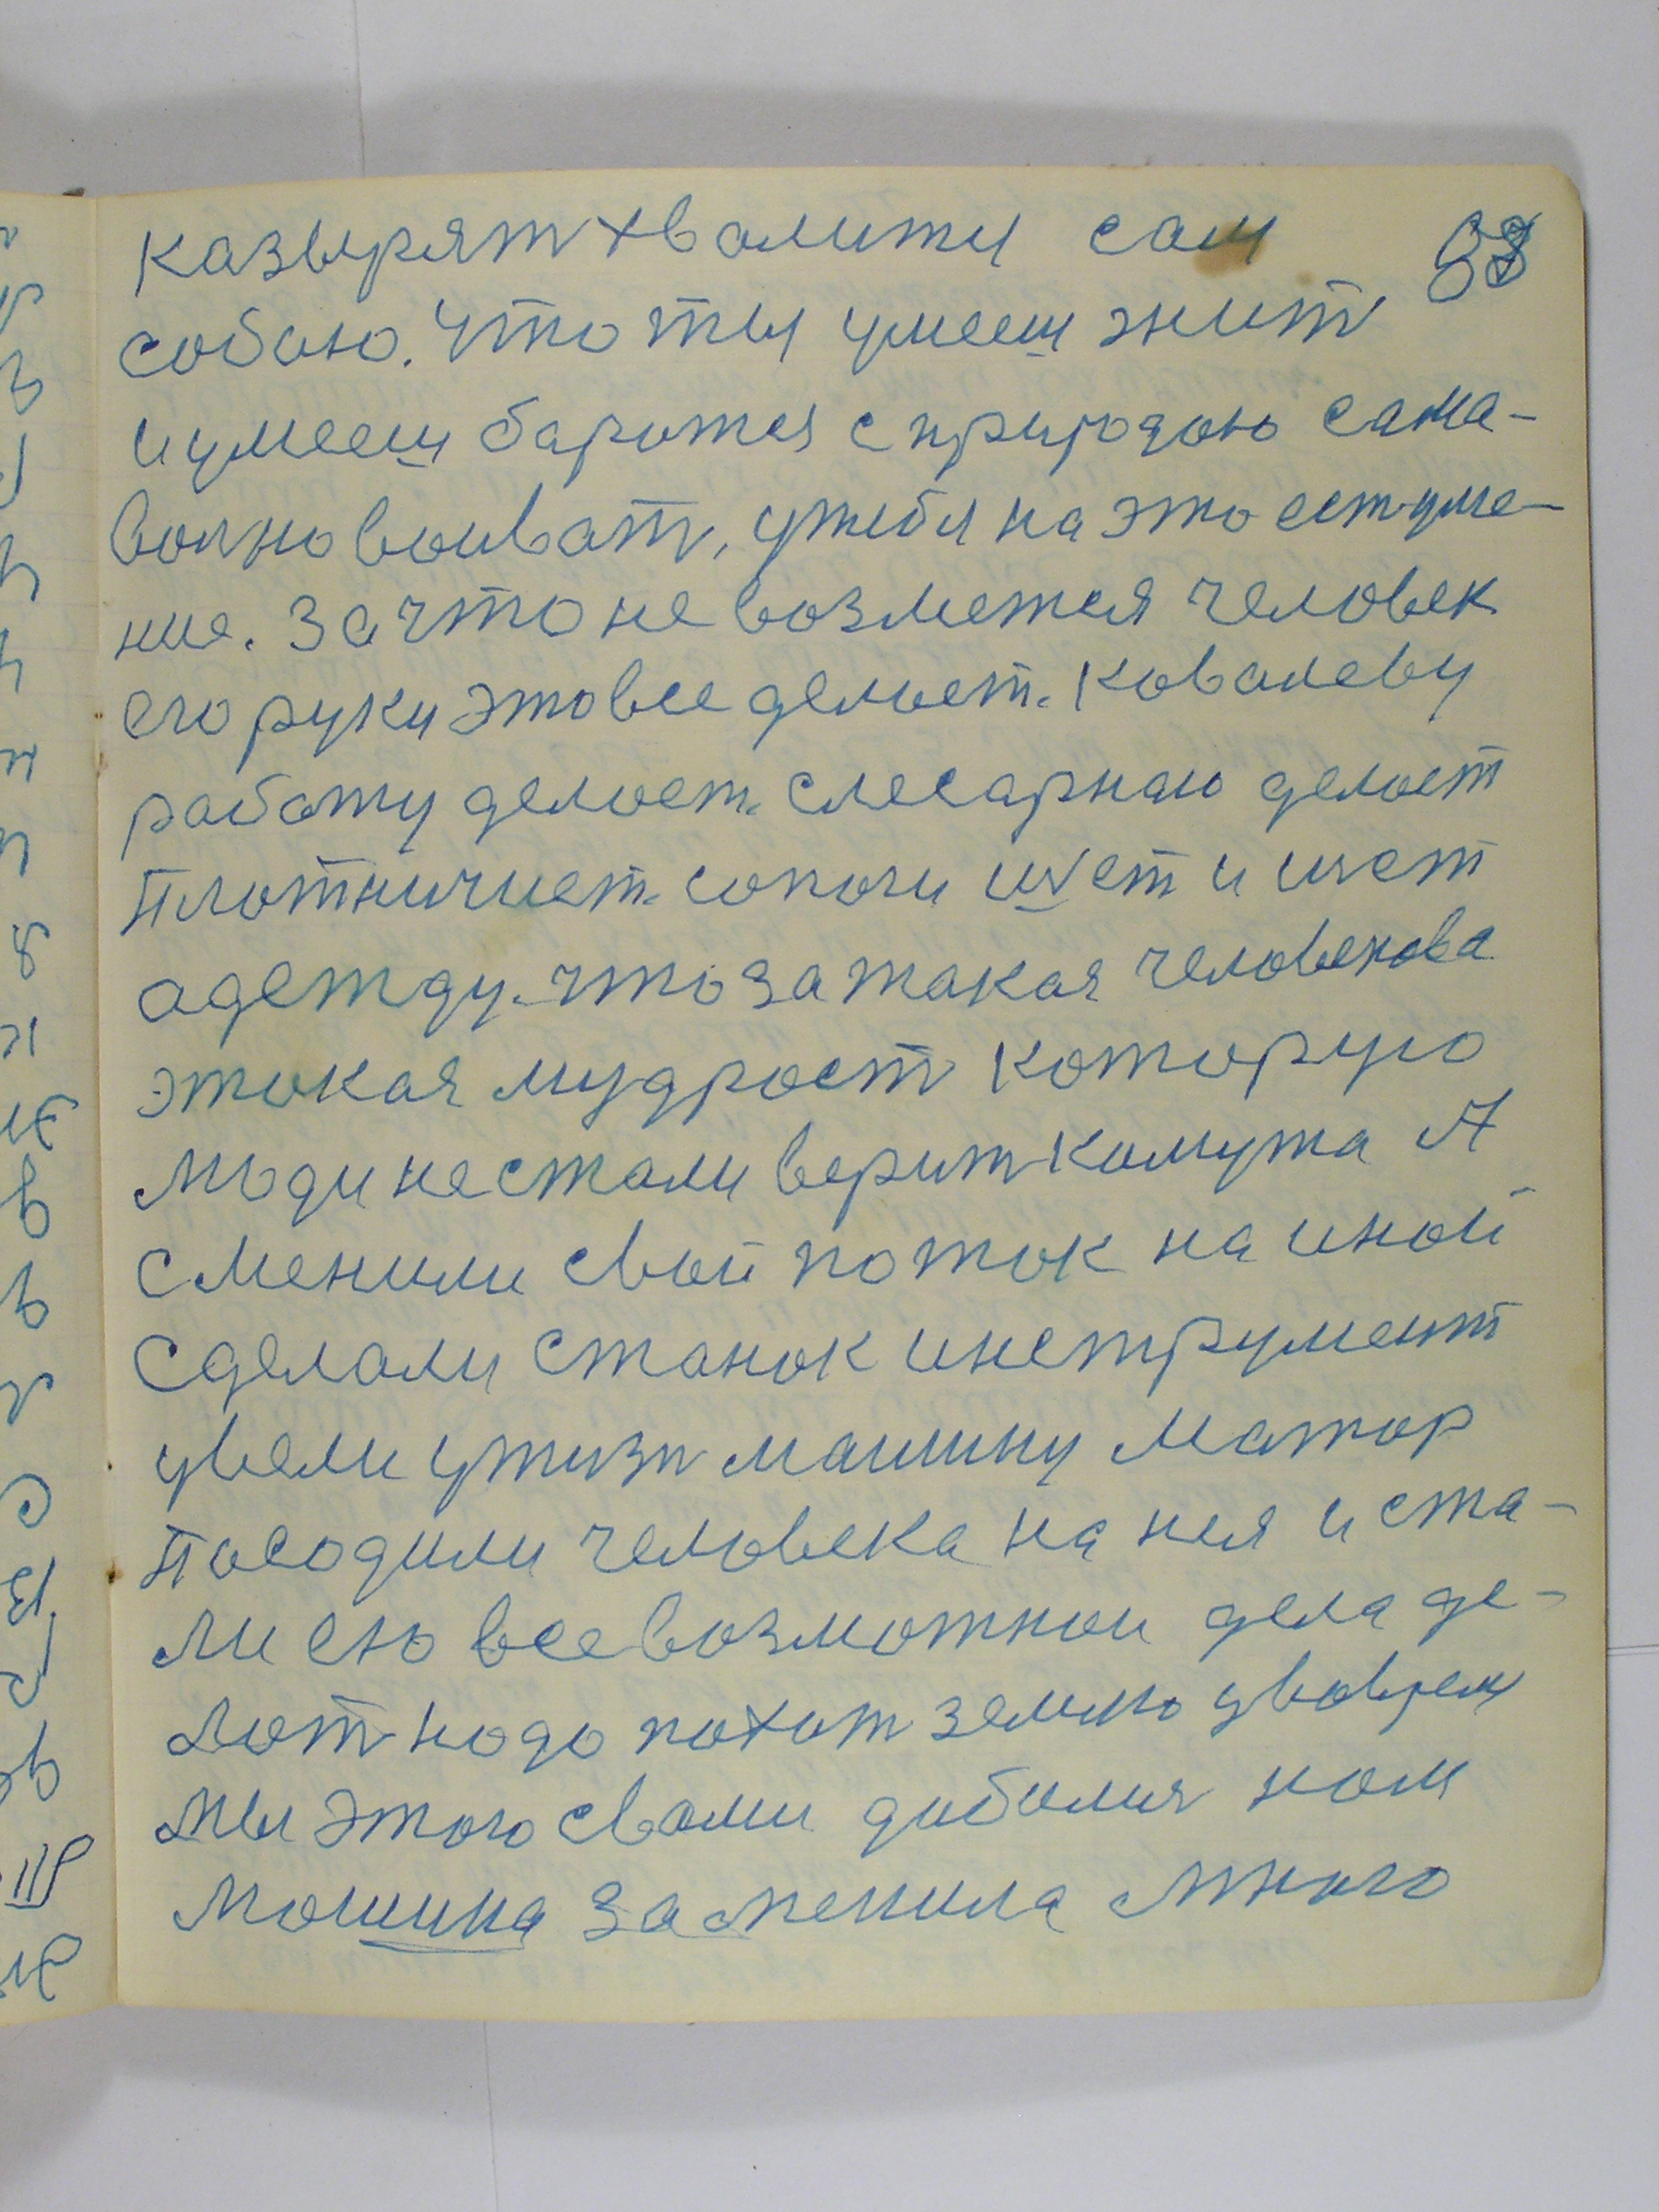 казырят хвалити сам 88
собою. Что ты умееш жит
и умееш баротся с природою сама-
волно воиват, утебя на это ест уме-
ние. За что не возмется человек
его руки это все делает. Ковалеву
работу делает. слесарнаю делает
плотничиет. сопоги шет и шет
адетду. что за такая человекова
этокая мудрост которую
люди не стали верит комута А
сменили свой поток на иной
сделали станок инструмент
ввели у тизн машину матор
посодили человека на нея и ста-
ли ею всевозмотнои дела де-
лат надо пахат землю
мы этого свами добилис нам
мошина заменила много